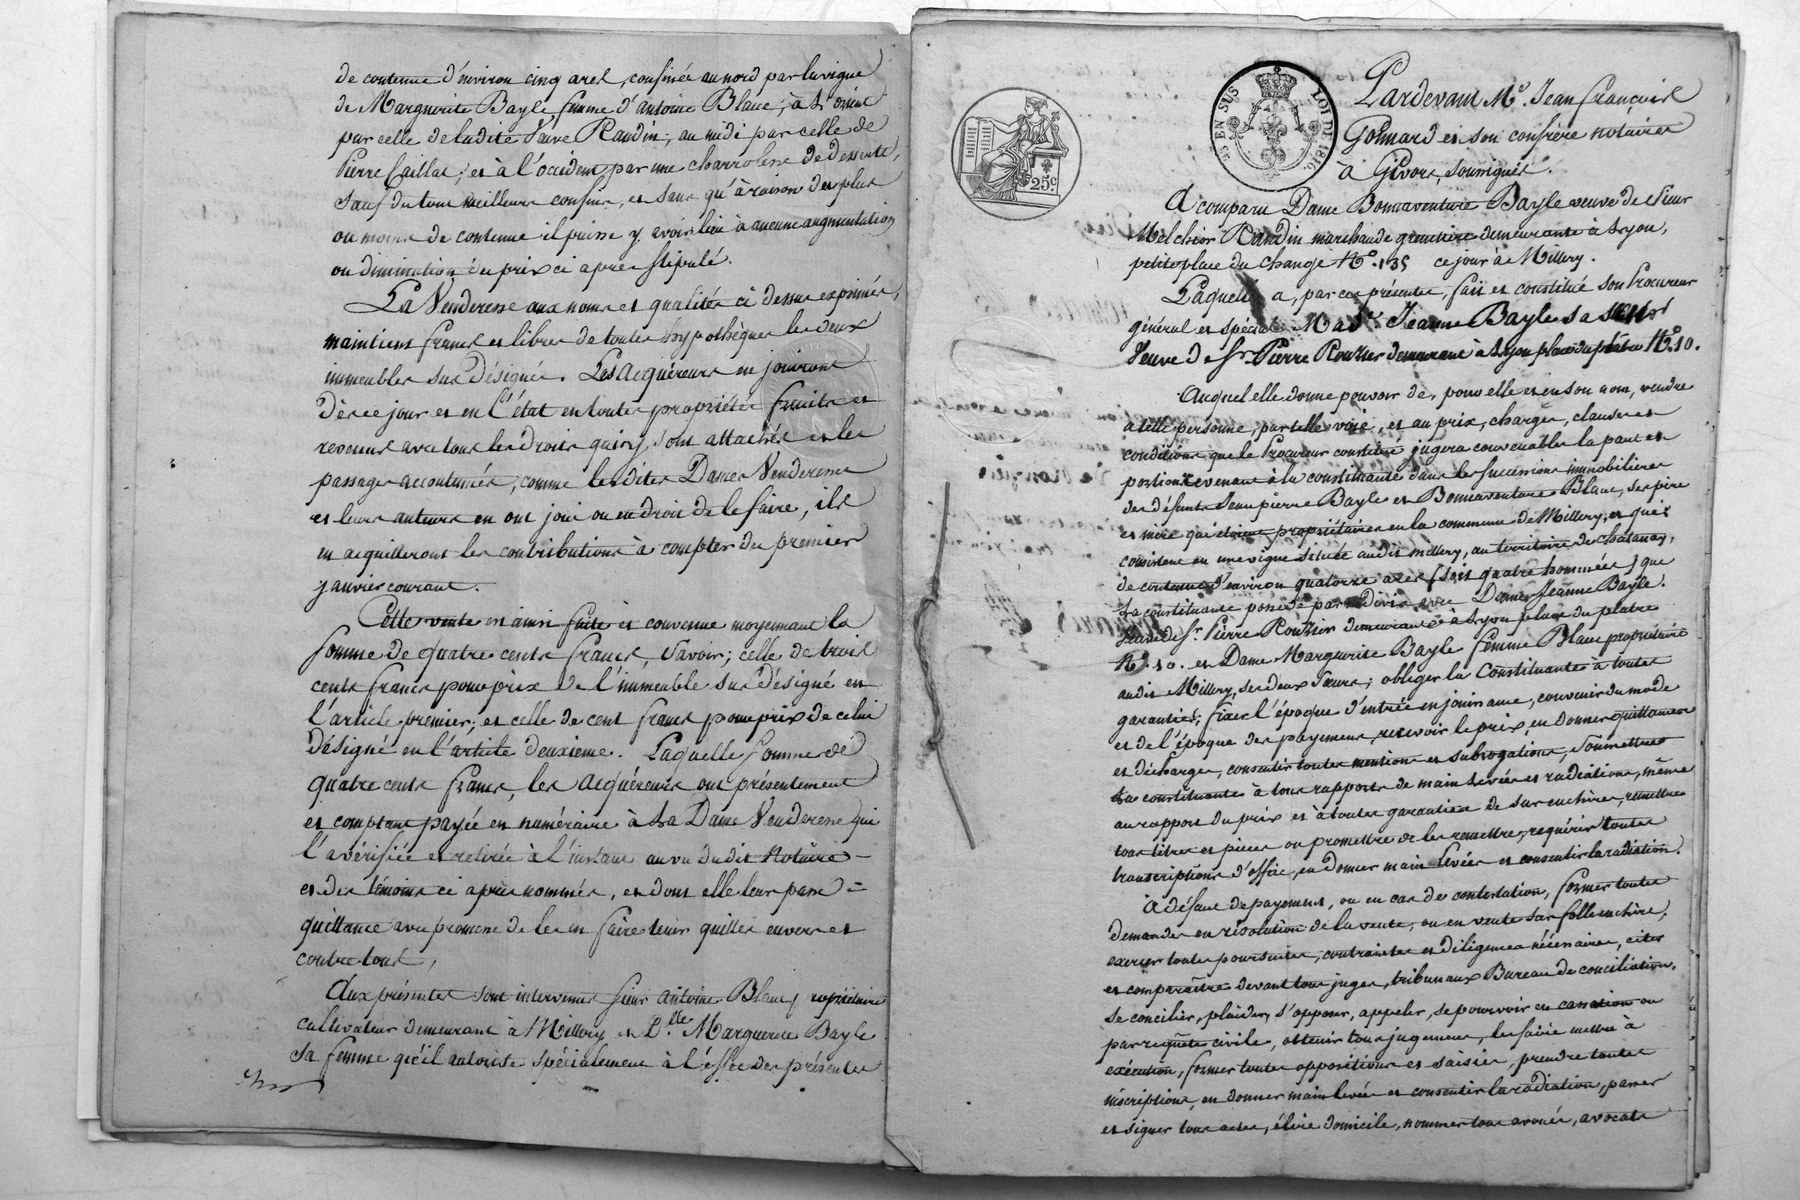 de contenue d'environ cinq ares, confinée au nord par la vigne
de Marguerite Bayle, femme d'antoine Blanc; à l'orient
par celle de ladite Veuve Randin; au midi par celle de
Pierre Caillat; et à l'occident par une charrolesse de desserte,
sauf du tout meilleurs confins, et sans qu'à raison de plus
ou moins de contenue il puisse y avoir lieu à aucune augmentation
ou diminution du prix ci après stipulé.
La Venderesse aux noms et qualités ci dessus exprimés,
maintient francs et libres de toutes hypothèques les deux
immeubles sus désignés. Les Acquéreurs en jouiront
dès ce jour et en l'état en toutes propriétés fruits et
revenus avec tous les droits qui y sont attachés et les
passages accoutumés, comme lesdites Dames Venderesses
et leurs auteurs en ont joui ou eu droit de le faire, ils
en acquitteront les contributions à compter du premier
janvier courant.
Cette vente est ainsi faite et convenue moyennant la
somme de quatre cents francs, savoir; celle de trois
cents francs pour prix de l'immeuble sus désigné en
l'article premier; et celle de cent francs pour prix de celui
désigné en l'article deuxieme. Laquelle somme de
quatre cents francs, les acquéreurs ont présentement
et comptant payée en numéraire à la Dame Venderesse qui
l'a vérifiée et retirée à l'instant au vu dudit Notaire
et des témoins ci après nommés, et dont elle leur passe
quittance avec promesse de les en faire tenir quittes envers et
contre tous.
Aux présentes sont intervenus sieur antoine Blanc, propriétaire
cultivateur demeurant à Millery, et D.lle Marguerite Bayle
sa femme qu'il autorise spécialement à l'effet des présentes
25c
EN SUS
LOI DE 1816
Pardevant Me. Jean François
Gonnard et son confrère notaires
à Givors, soussignés.
A comparu Dame Bonnaventure Bayle veuve de sieur
Melchior Randin marchande demeurante à Lyon,
petite place du Change No. 135 ce jour à Millery.
Laquelle a, par ces présentes, fait et constitué son Procureur
général et spécial Made. Jeanne Bayle sa sœur
Veuve de Sr. Pierre Rouzier demeurant à Lyon place du plâtre No. 10.
Auquel elle donne pouvoir de, pour elle et en son nom, vendre
à telle personne, par telle voie, et au prix, charges, clauses et
conditions que le Procureur constitué jugera convenables la part et
portion revenant à la constituante dans les successions immobilières
de défunts Jean pierre Bayle et Bonnaventure Blanc, ses père
et mère qui étoient propriétaires en la commune de Millery, et qui
consistent en une vigne située audit Millery, au territoire de Chatanay,
de contenue d'environ quatorze ares (soit quatre hommées) que
la constituante possède par indivis avec Dame Jeanne Bayle
Veuve de Sr. Pierre Rouzier demeurante à Lyon place du platre
No. 10. et Dame Marguerite Bayle femme Blanc propriétaire
audit Millery, ses deux sœurs; obliger la Constituante à toutes
garanties, fixer l'époque d'entrée en jouissance, convenir du mode
et de l'époque des payemens, recevoir le prix, en donner quittances
et décharges, consentir toutes mentions et subrogations, soumettre
la constituante à tous rapports de main levées et radiations, même
au rapport du prix et à toutes garanties de surenchères, remettre
tous titres et pieces ou promettre de les remettre, requérir toutes
transcriptions d'office, en donner main levées et consentir la radiation.
A défaut de payement, ou en cas de contestation, former toutes
demandes en résolution de la vente, ou en vente sur folle enchère,
exercer toutes poursuites, contraintes et diligences nécessaires, citer
et comparaître devant tous juges, tribunaux Bureau de conciliation,
se concilier, plaider, s'opposer, appeler, se pourvoir en cassation ou
par requête civile, obtenir tous jugemens, les faire mettre à
exécution, former toutes oppositions et saisies, prendre toutes
inscriptions, en donner main levée et consentir la radiation, passer
et signer tous actes, élire domicile, nommer tous avoués, avocats